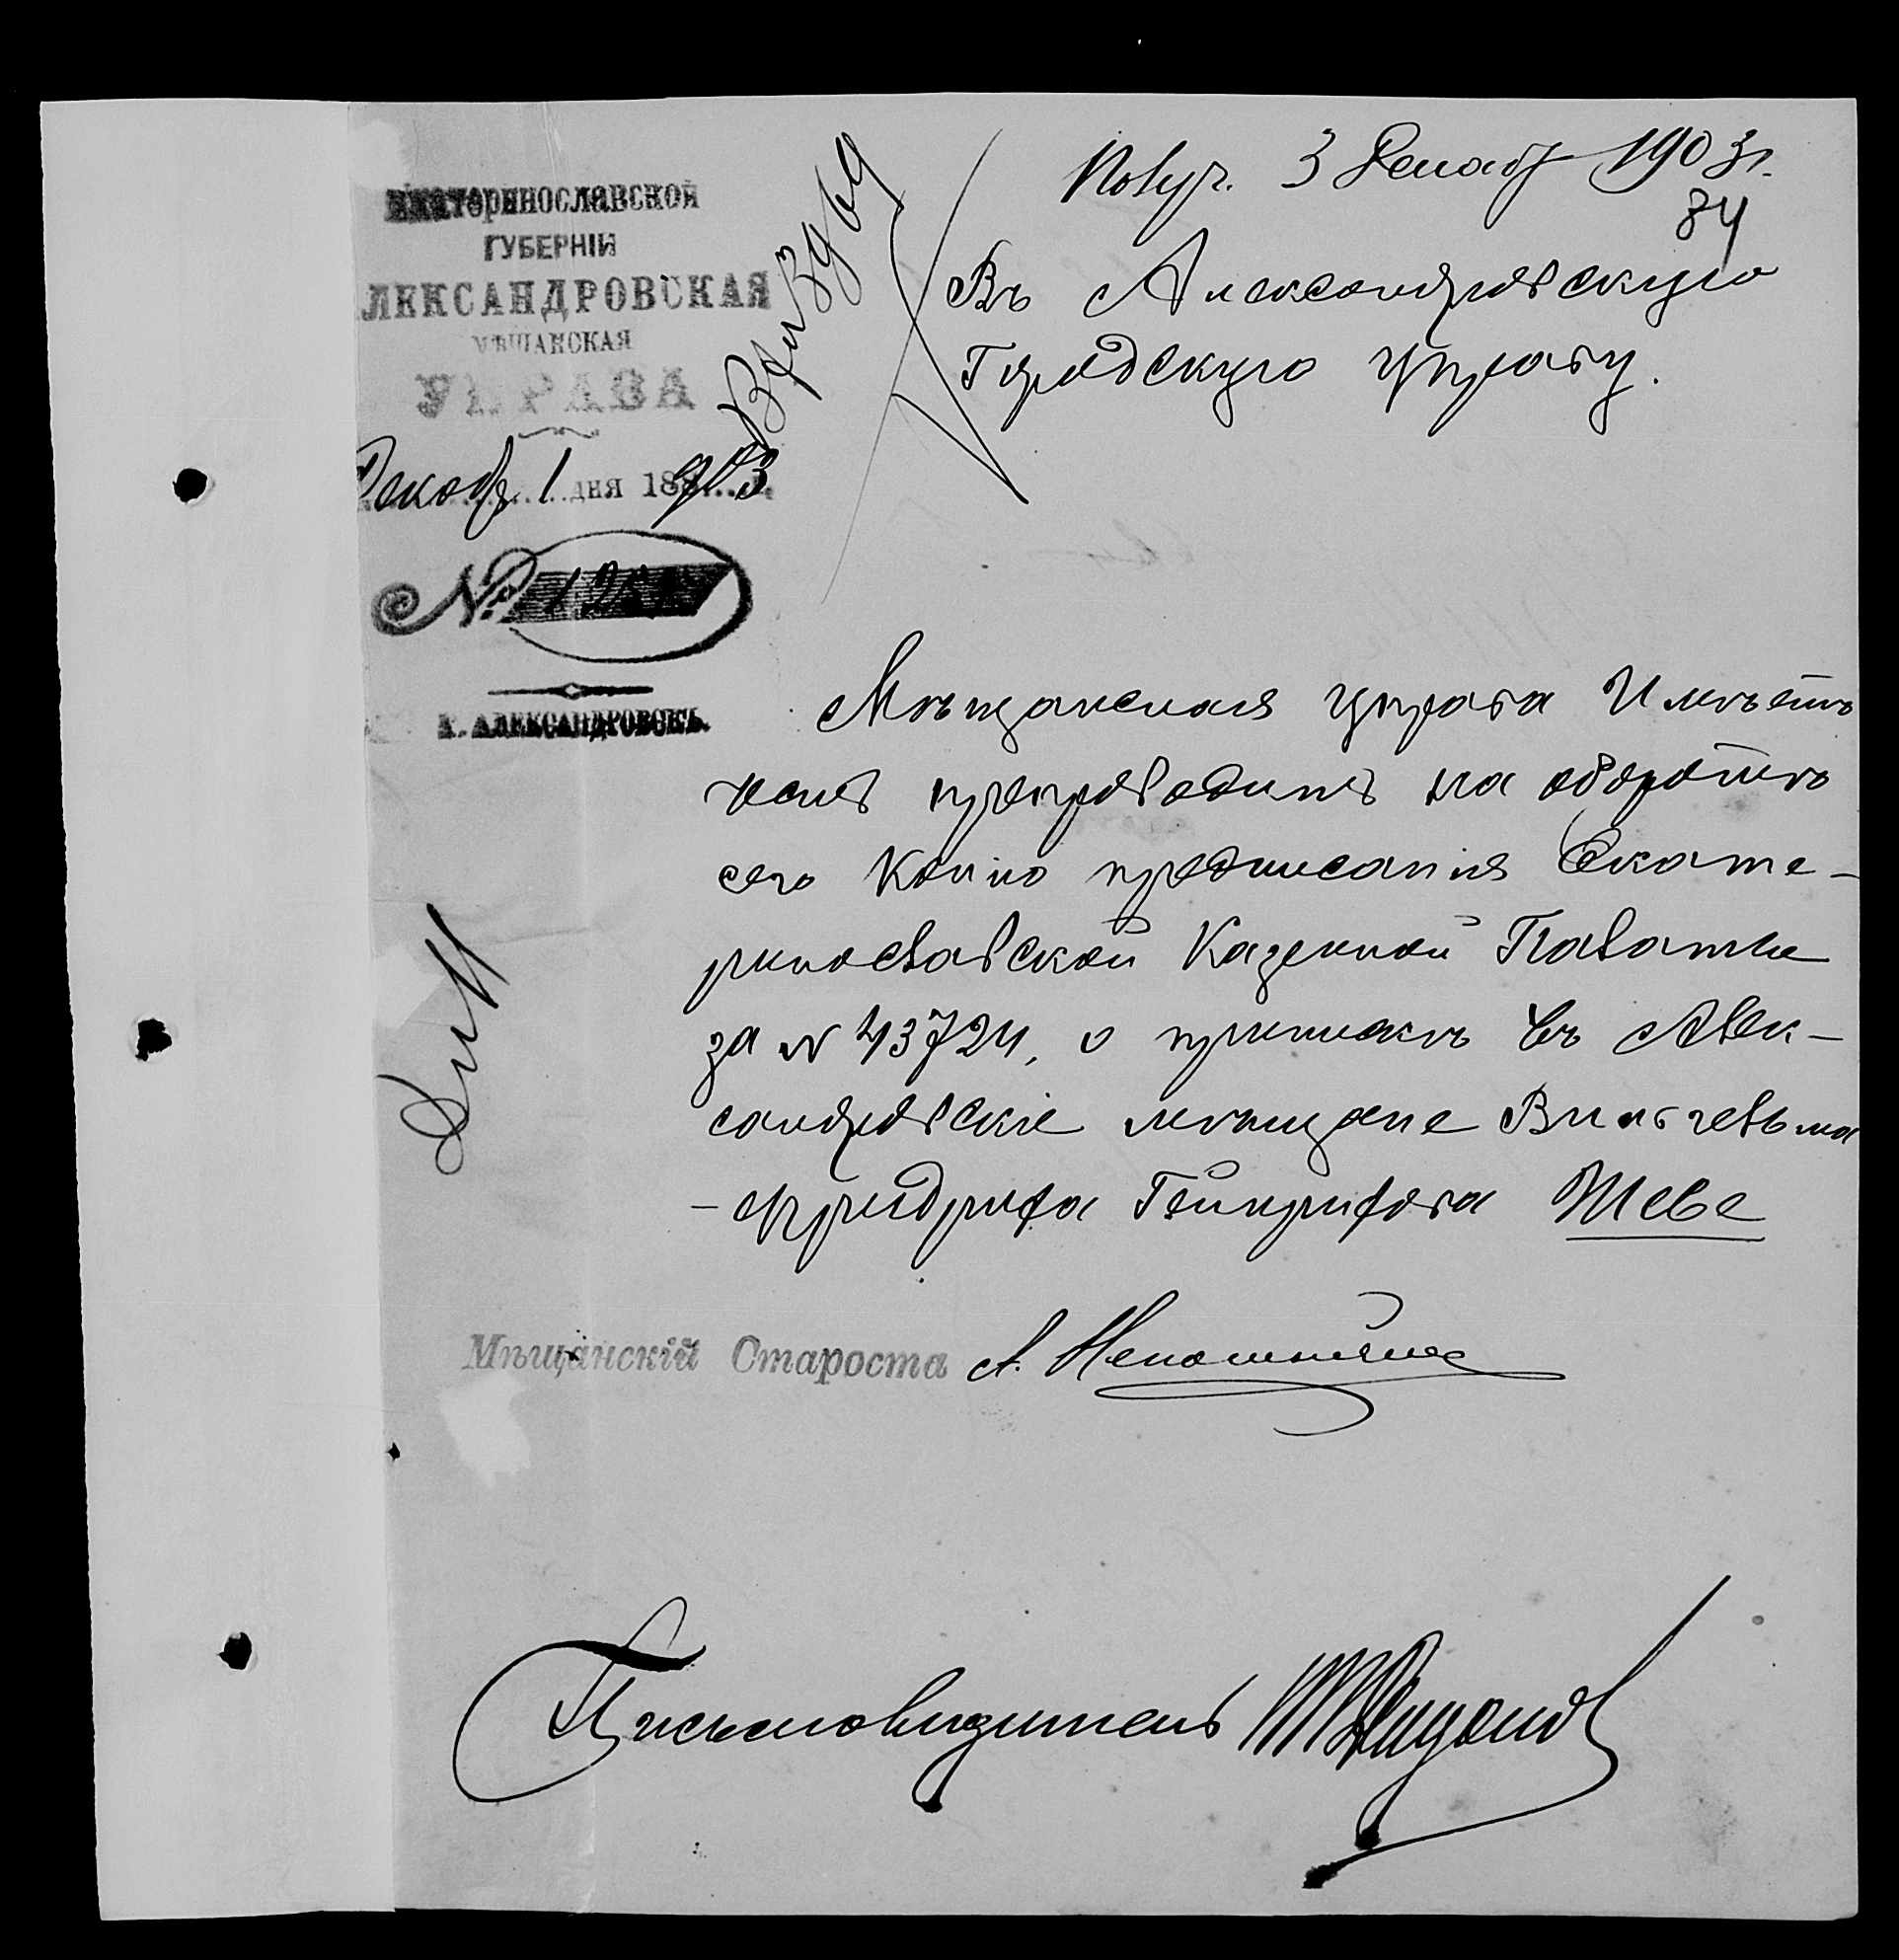 Получ. 3 Декабр 1903 г.
84
Екатеринославской
ГУБЕРНІИ
АЛЕКСАНДРОВСКАЯ
МѢЩАНСКАЯ
УПРАВА
Декабр 1 дня 188 903 г.
№
Г. АЛЕКСАНДРОВСКЪ.
Въ Александровскую
Городскую управу.
Мѣщанская управа Имѣетъ
честь препроводить на оборотѣ
сего Копію предписанія Екате-
ринославской Казенной Палаты
за № 43724, о припискѣ въ Алек-
сандровскіе мѣщане Вильгельма
-Фридриха Гейнрихова Шеве
Мѣщанскій Староста А.
Письмоводитель